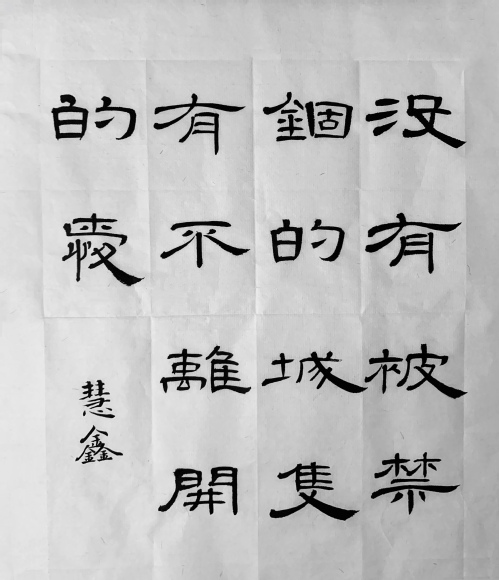 没有被禁
錮的城隻
有不離開
的愛
慧鑫